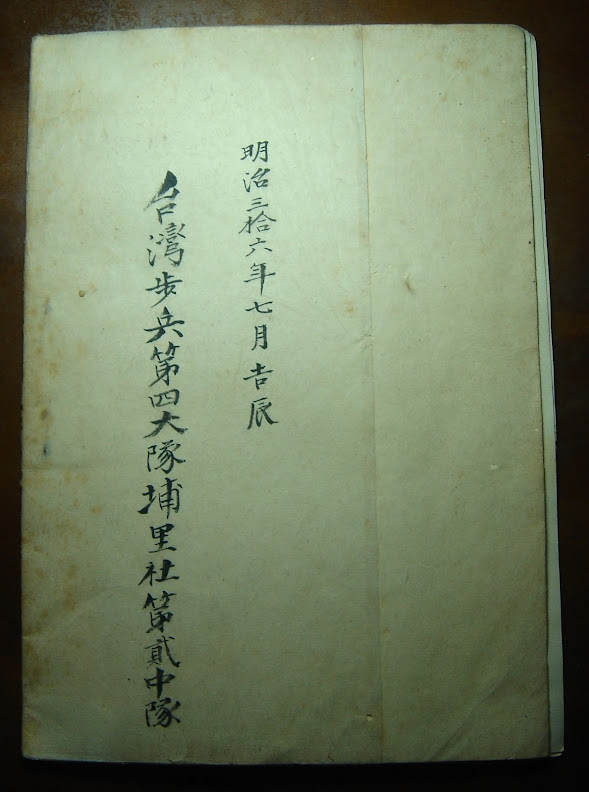 明治三拾六年七月吉辰
台灣步兵第四大隊埔里社第貳中隊